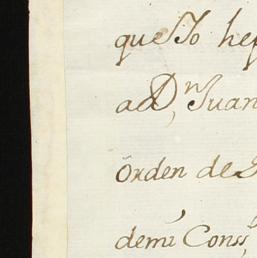 que Yo he
a D.ⁿ Juan
orden de
de mi Cons